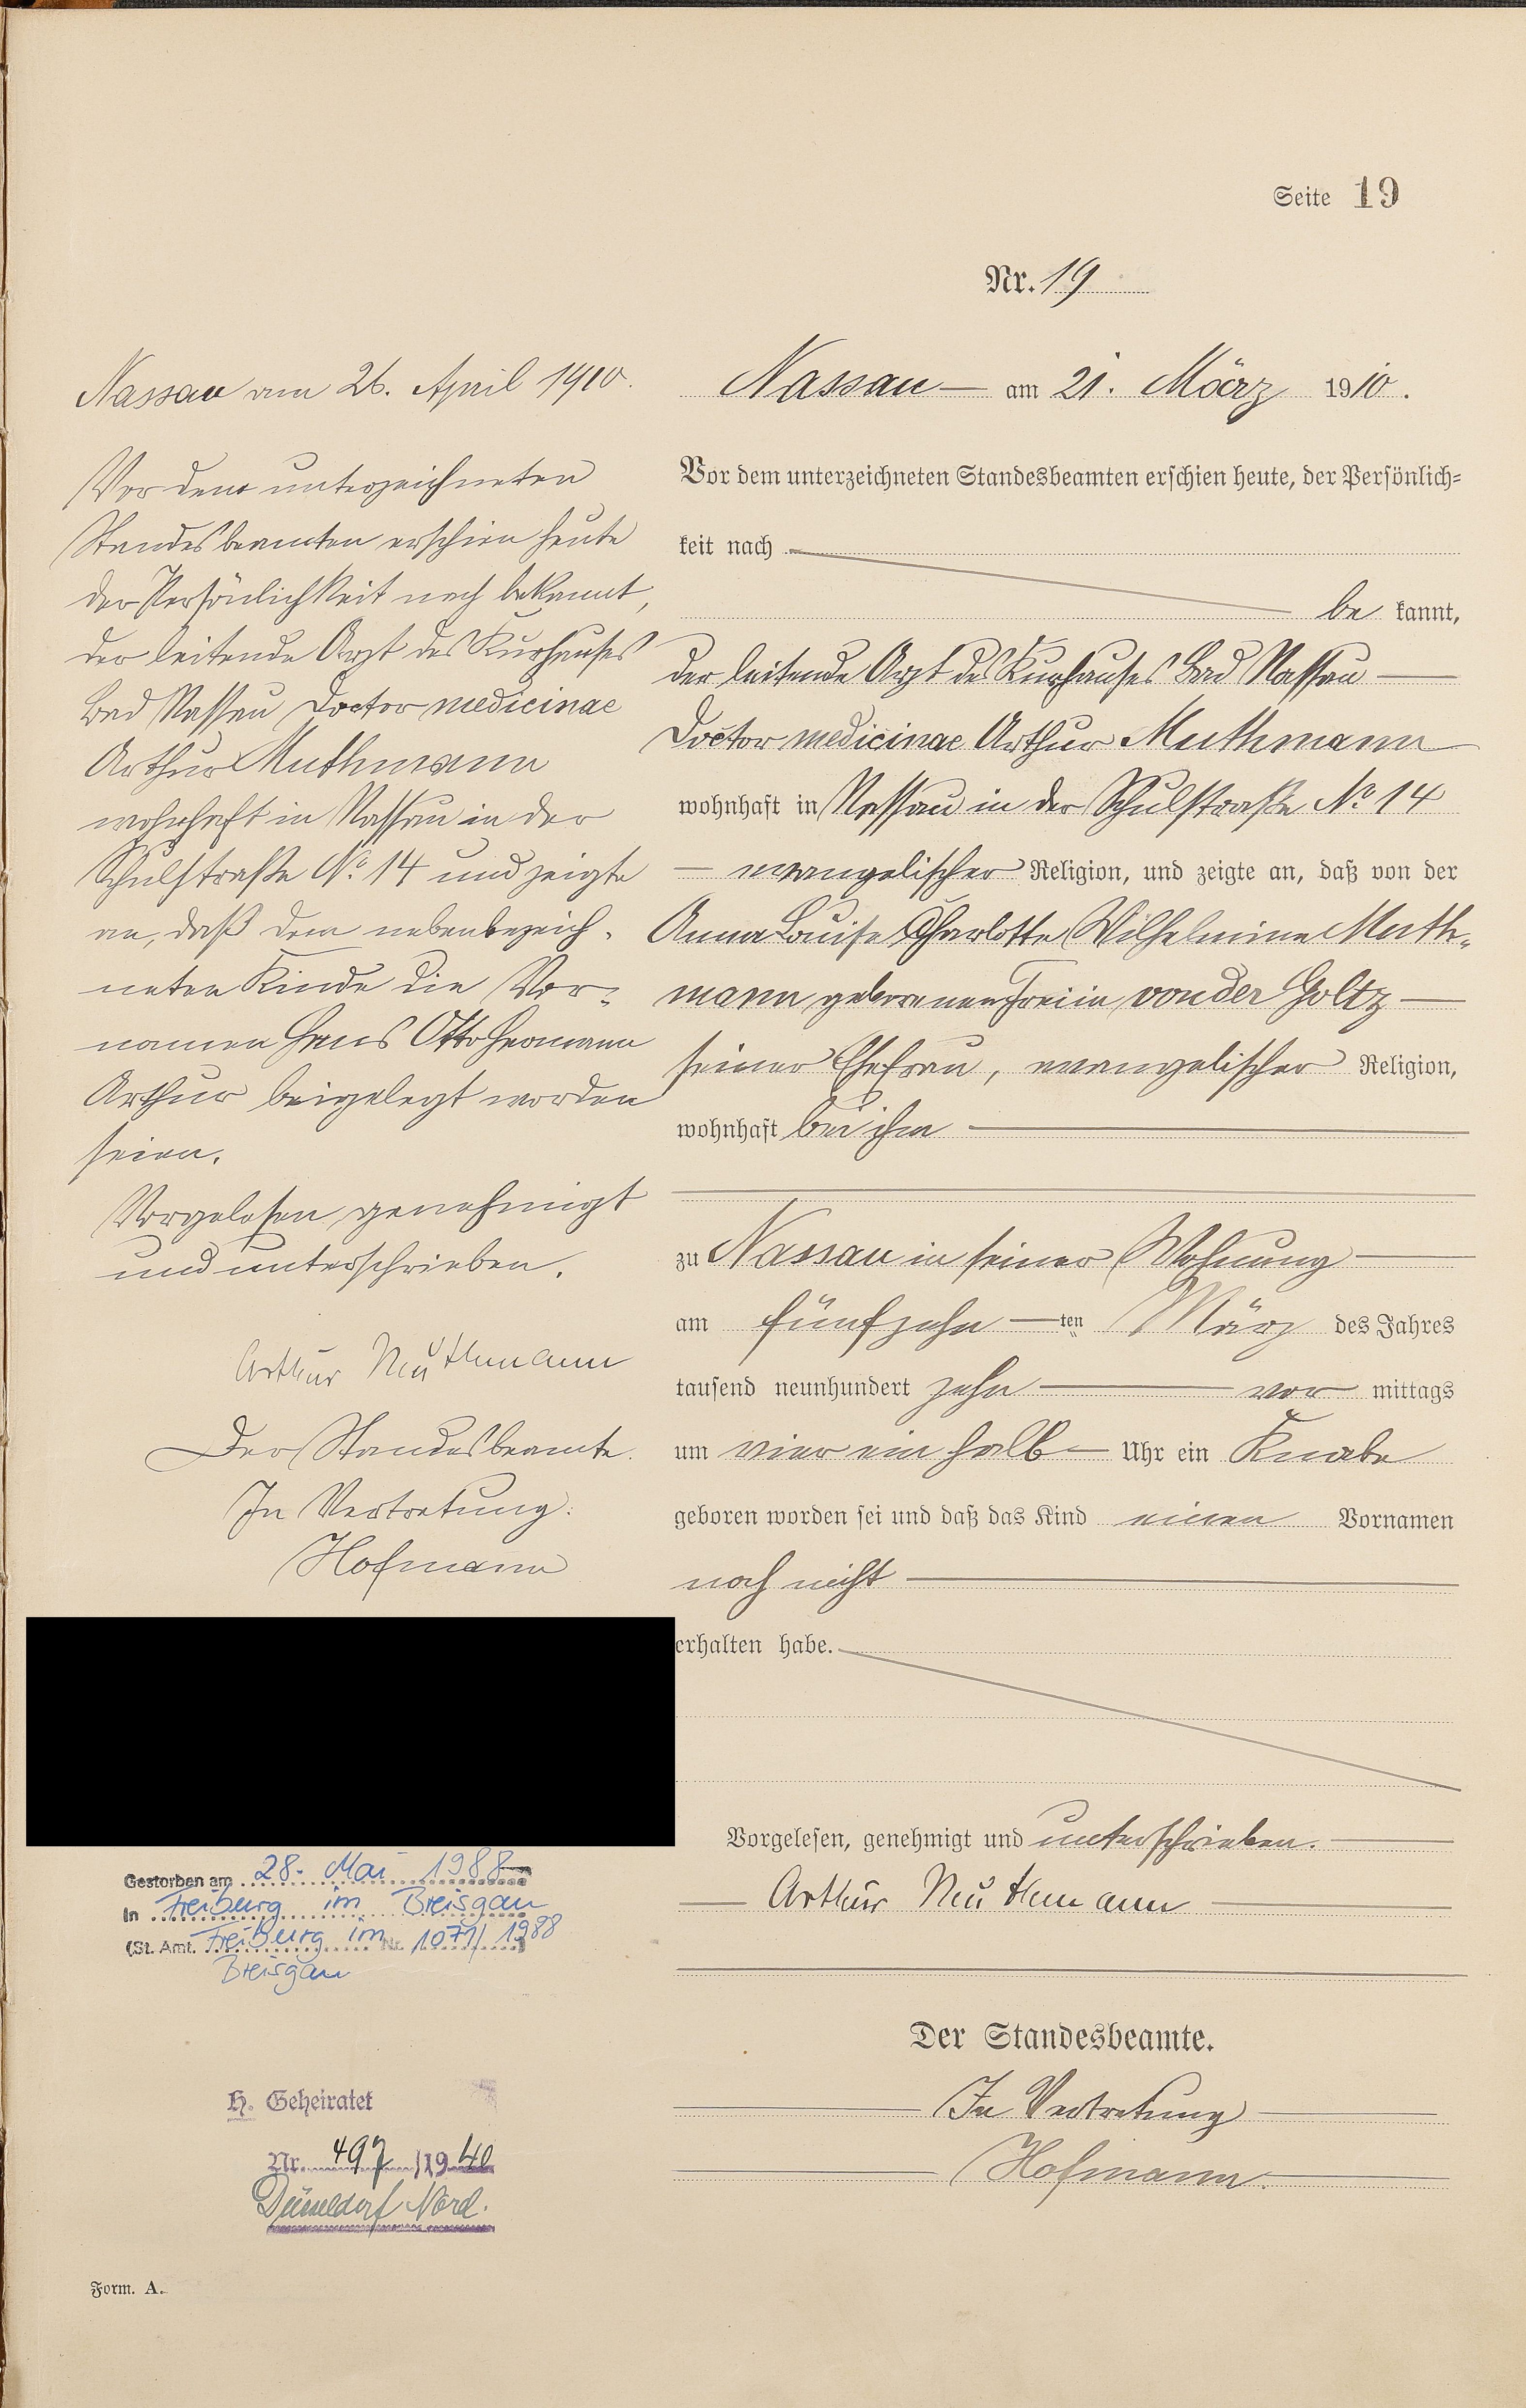 Seite 19
Nr. 19
Nassau am 21. März 1910.
Vor dem unterzeichneten Standesbeamten erschien heute, der Persönlich=
keit nach
be kannt,
der leitende Arzt des Kurhauses Bad Nassau
Doctor medicinae Arthur Muthmann
wohnhaft in Nassau in der Schulstraße No 14
evangelischer Religion, und zeigte an, daß von der
Anna Louise Charlotte Wilhelmine Muth-
mann geborenen Freiin von der Goltz
seiner Ehefrau, evangelischer Religion,
wohnhaft bei ihm
zu Nassau in seiner Wohnung
am fünfzehn ten März des Jahres
tausend neunhundert zehn vor mittags
um vier ein halb Uhr ein Knabe
geboren worden sei und daß das Kind einen Vornamen
noch nicht
erhalten habe.
Vorgelesen, genehmigt und unterschrieben.
Arthur Muthmann
Der Standesbeamte.
In Vertretung
Hofmann.
Nassau am 26. April 1910.
Vor dem unterzeichneten
Standesbeamten erschien heute
der Persönlichkeit nach bekannt,
der leitende Arzt des Kurhauses
Bad Nassau Doctor medicinae
Arthur Muthmann
wohnhaft in Nassau in der
Schulstraße No. 14 und zeigte
an, daß dem nebenbezeich-
neten Kinde die Vor-
namen Hans Otto Hermann
Arthur beigelegt worden
seien.
Vorgelesen genehmigt
und unterschrieben.
Arthur Muthmann
Der Standesbeamte.
In Vertretung:
Hofmann
Gestorben am 28. Mai 1988
in Freiburg im Breisgau
(St. Amt. Freiburg im Nr. 1071/1988)
Breisgau
H. Geheiratet
Nr. 497 /1940
Düsseldorf Nord.
Form. A.